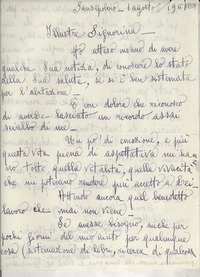 Sansepolcro - 1 agosto 195
Illustre Signorina,
Ho atteso invano di avere
qualche Sua notizia, di conoscere lo stato
della Sua salute, se si è ben sistemata
per l'abitazione.
È con dolore che riconosco
di averle lasciato un ricordo assai
scialbo di me.
Un po' di emozione, e più
questa vita piena di aspettativa mi ha
tolto quella vitalità, quella vivacità
che mi potevano rendere più accetto a Lei.
Attendo ancora quel benedetto
lavoro che mai non viene.
Se avesse bisogno, anche per
pochi giorni del mio aiuto per qualunque
cosa (sistemazione de libri, ricerca di qualcosa